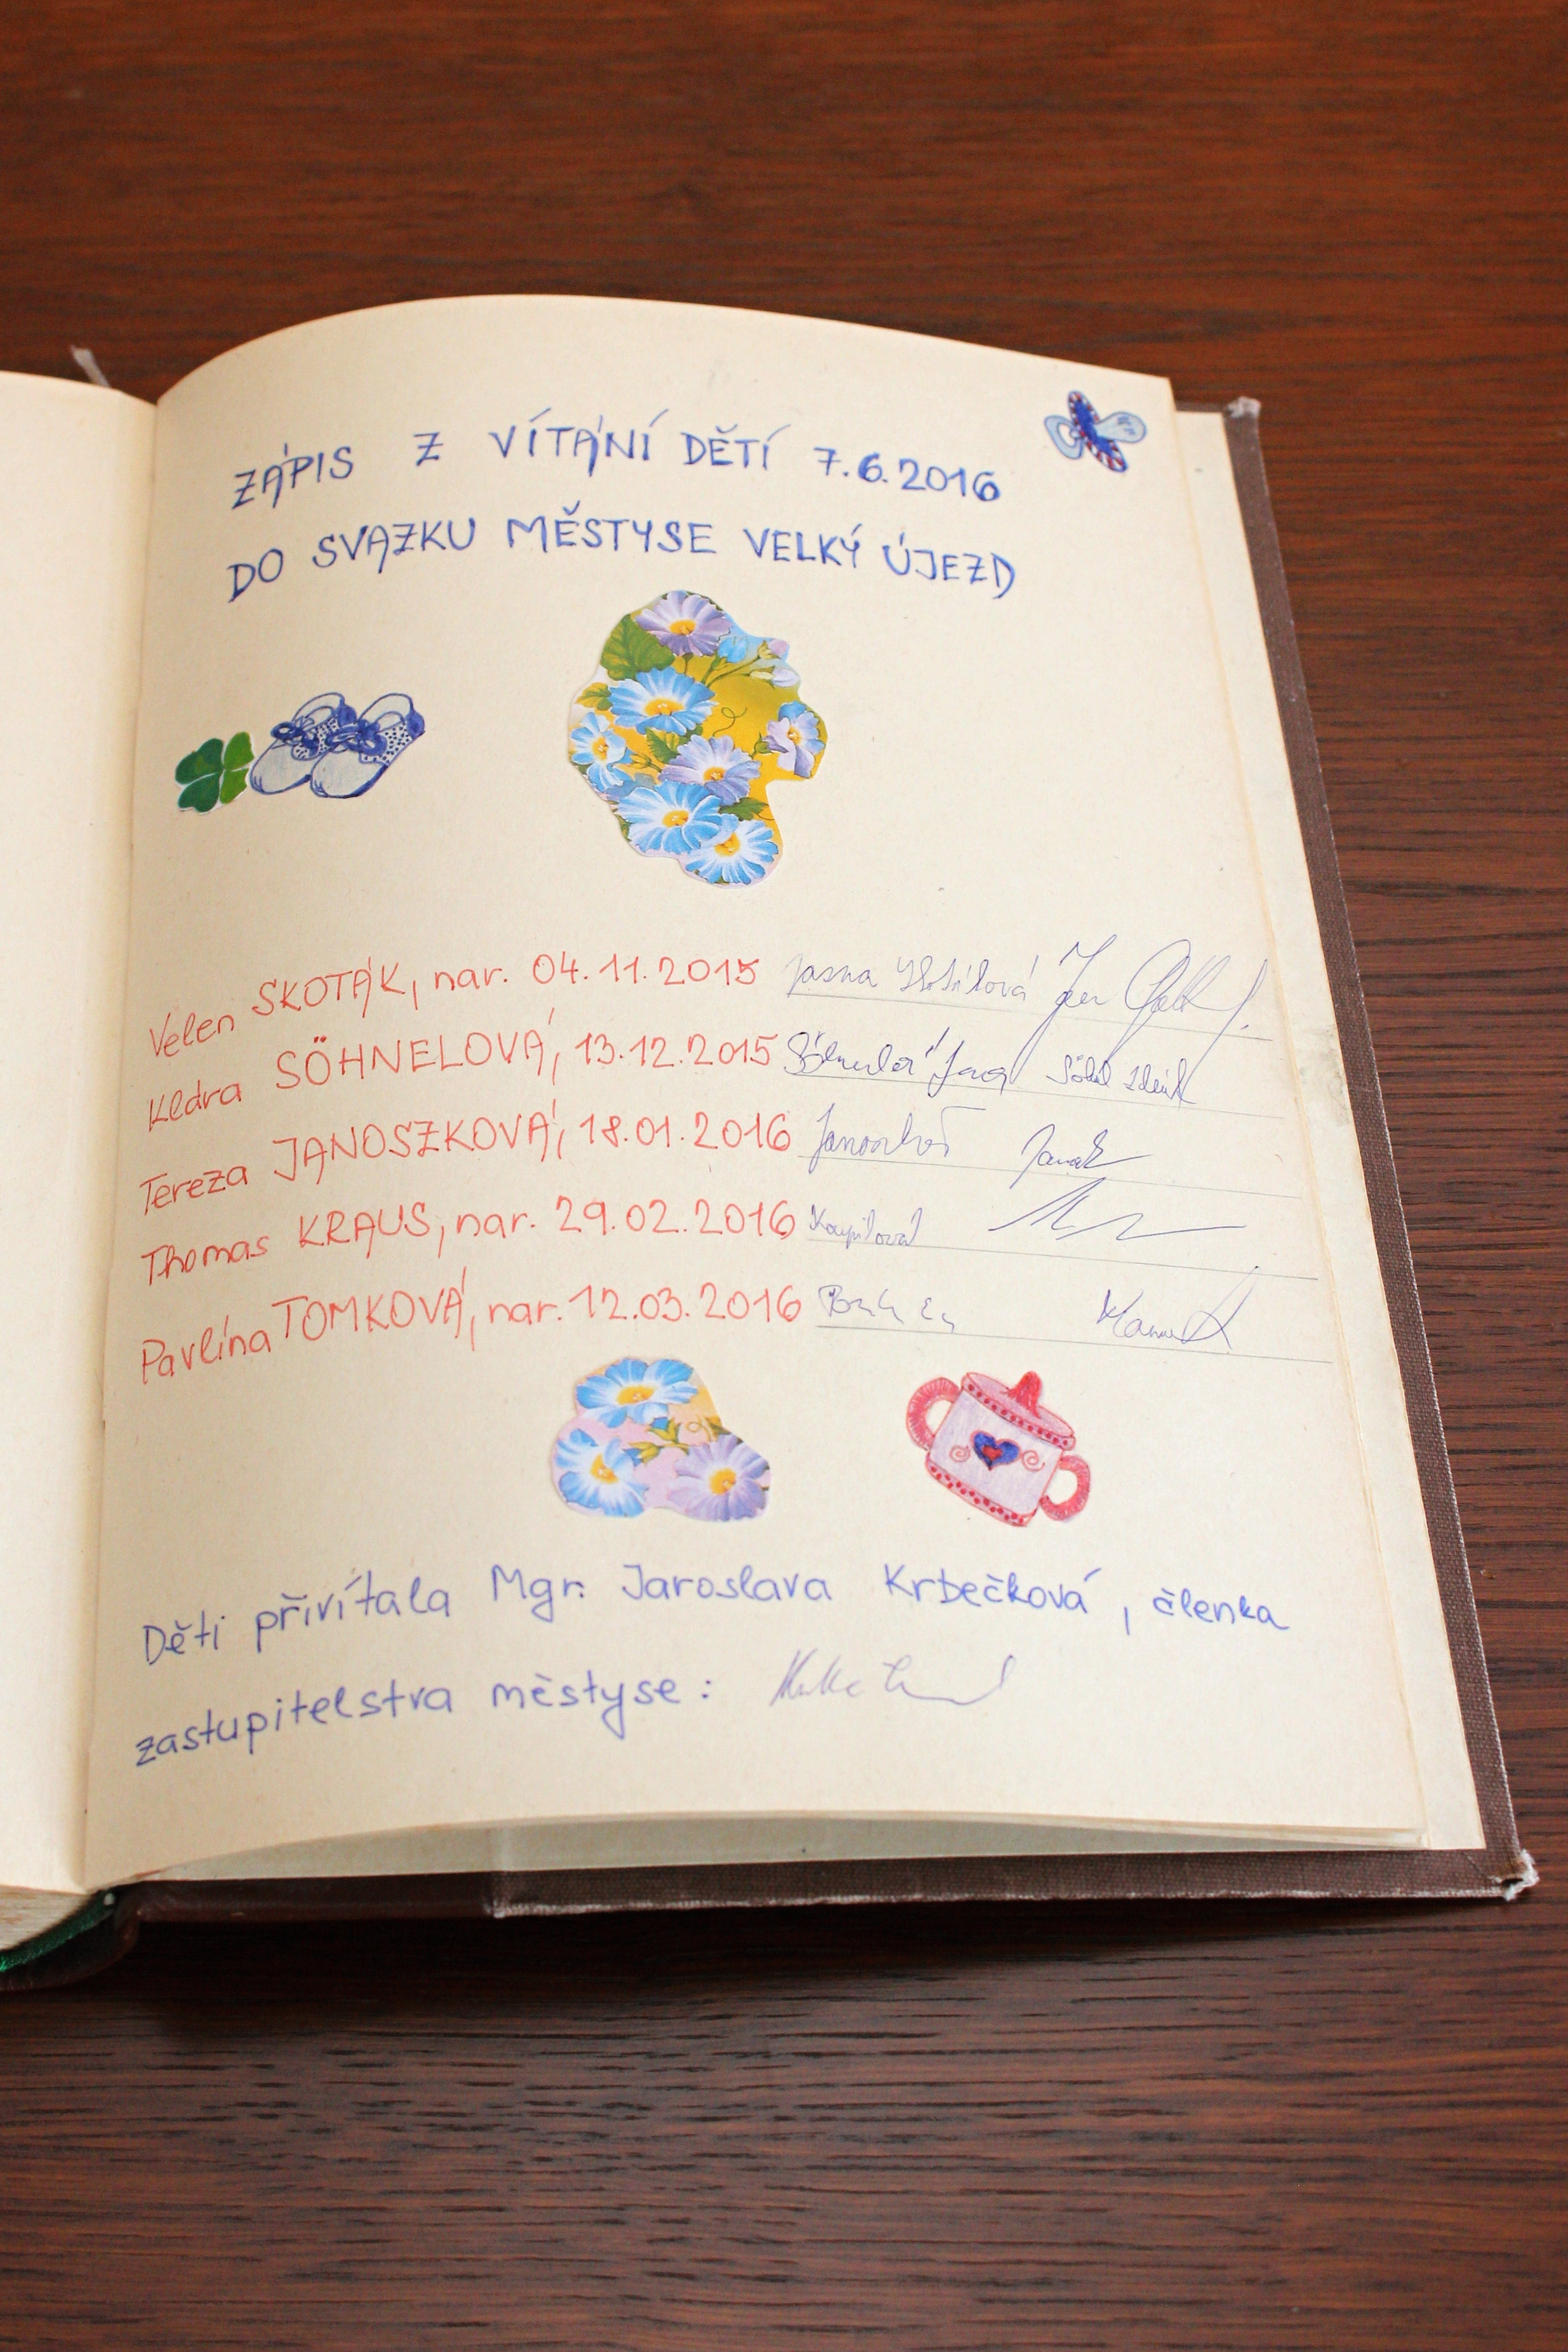 ZÁPIS Z VÍTÁNÍ DĚTÍ 7.6.2016
DO SVAZKU MĚSTYSE VELKÝ ÚJEZD
Velen SKOTÁK, nar. 04.11.2015
Klára SÖHNELOVÁ, 13.12.2015
Tereza JANOSZKOVÁ, 18.01.2016
Thomas KRAUS, nar. 29.02.2016
Pavlína TOMKOVÁ, nar. 12.03.2016
Děti přivítala Mgr. Jaroslava Krbečková, členka
zastupitelstva městyse: